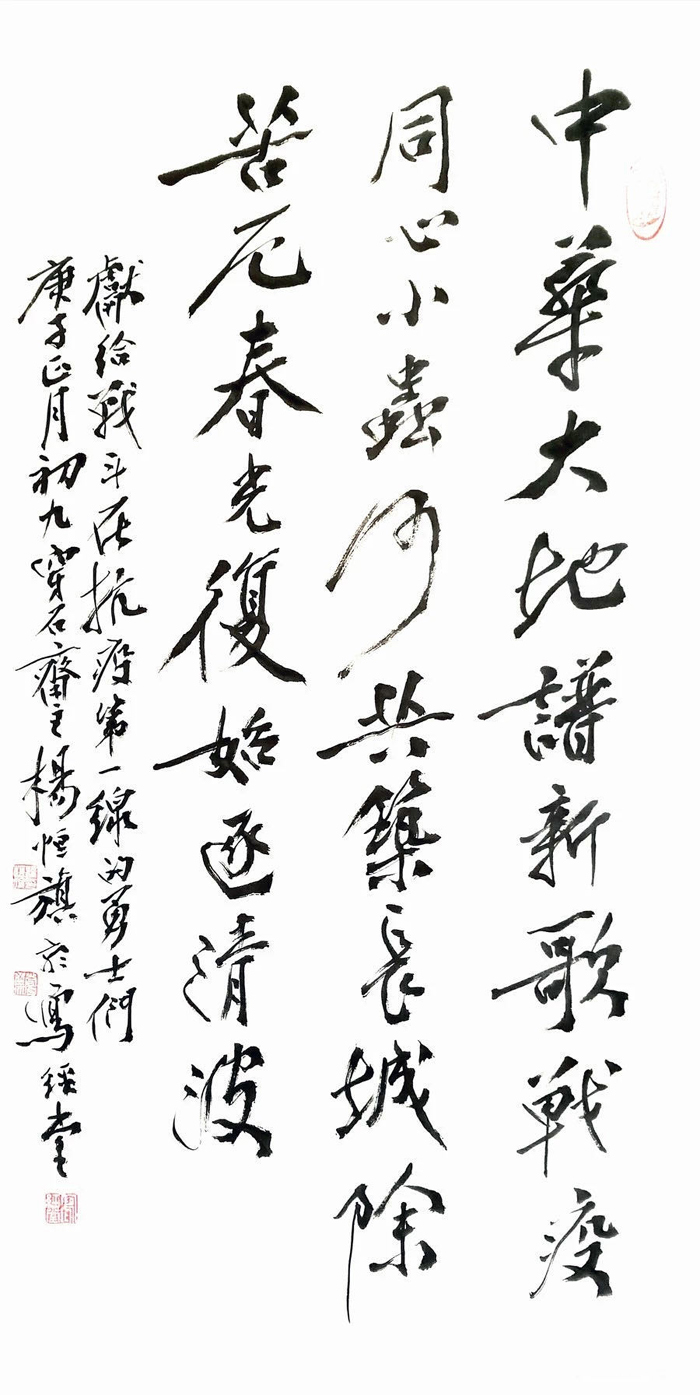 中華大地譜新歌戰疫
同心小蟲何共築長城除
苦厄春光復始逐清波
獻給戰斗在抗疫第一線的勇士們
庚子正月初九穿石齋主楊恒旗於寫經堂